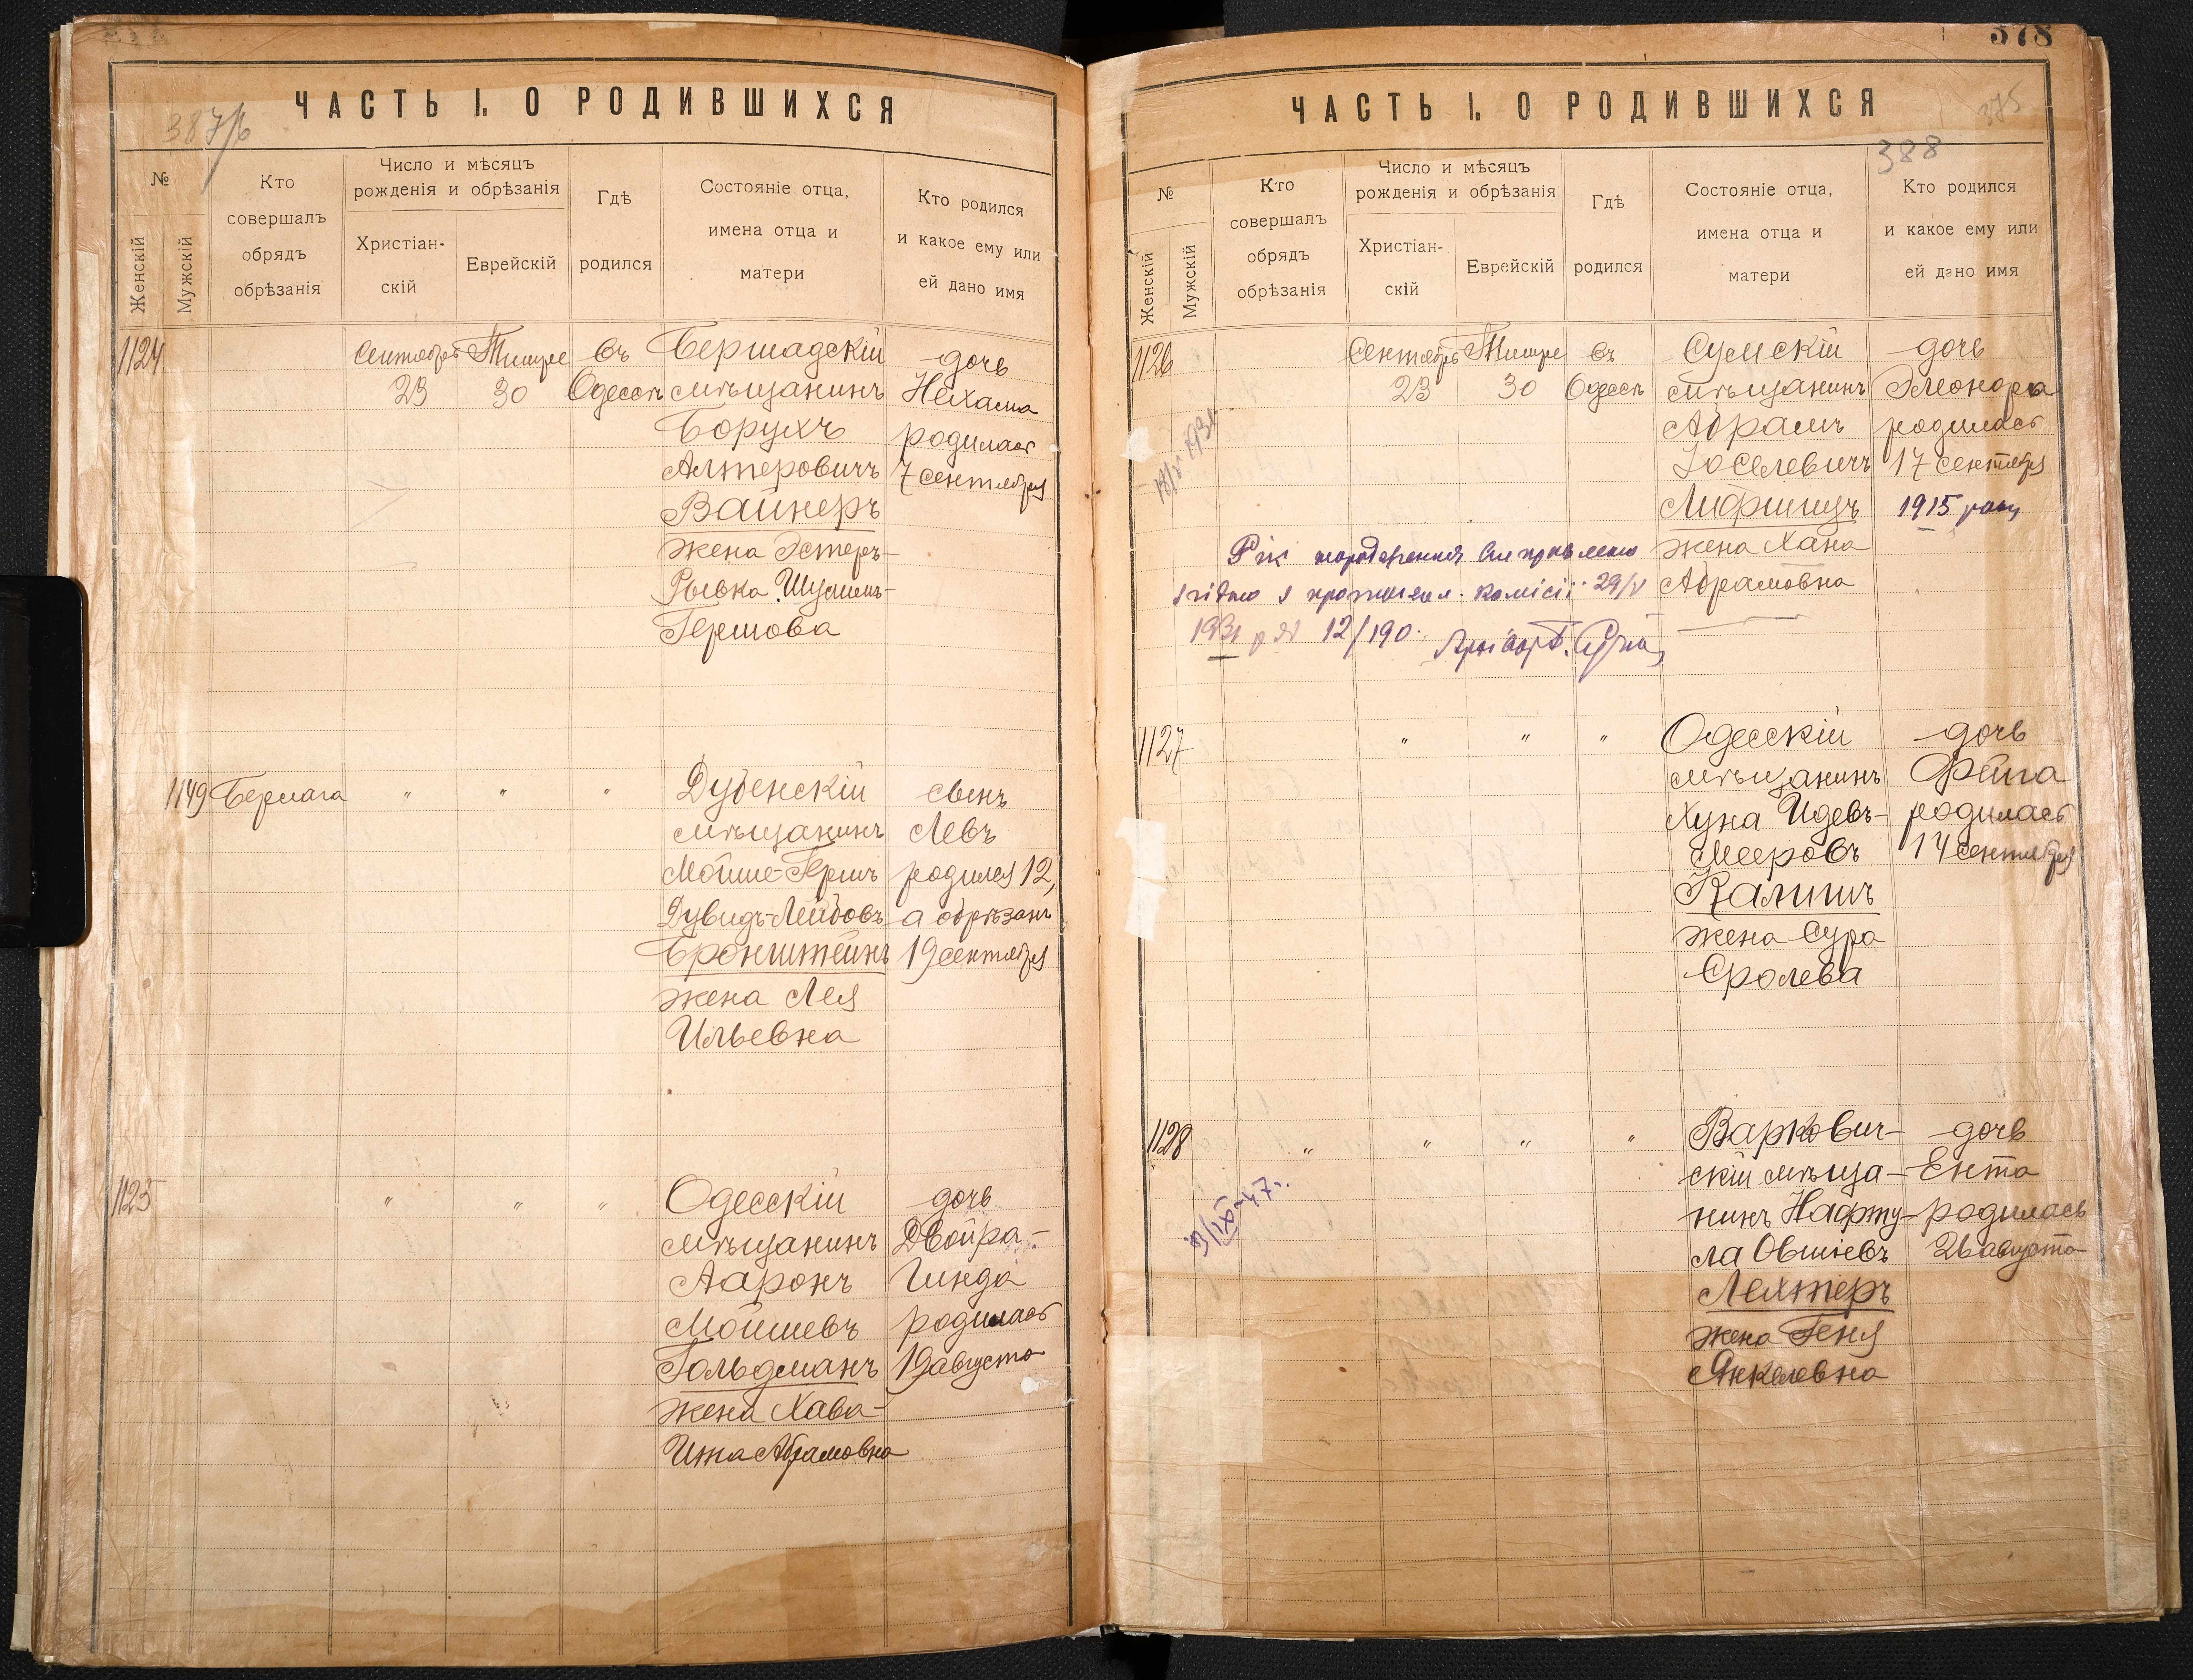 387/б
ЧАСТЬ I. О РОДИВШИХСЯ
№
Женскій
Мужскій
Кто
совершалъ
обрядъ
обрѣзанія
Число и мѣсяцъ
рожденія и обрѣзанія
Христіан-
скій
Еврейскій
Гдѣ
родился
Состояніе отца,
имена отца и
матери
Кто родился
и какое ему или
ей дано имя
1124 Сентябрь Тишре въ Бершадскій дочь
23 30 Одессѣ мѣщанинъ Нехама
Борухъ родилась
Алтеровичъ 7 сентября
Вайнеръ
жена Эстеръ-
Рывка
Гершова
1149 " " " Дубенскій сынъ
мѣщанинъ Левъ
Мойше-Гершъ родился 12,
Дувидъ-Лейбовъ а обрѣзанъ
Бронштейнъ 19 сентября
жена Лея
Ильевна
1125 " " " Одесскій дочь
мѣщанинъ Двойра-
Ааронъ Гинда
Мойшевъ родилась
Гольдманъ 19 августа
жена Хава-
Ита Абрамовна
378
375
388
ЧАСТЬ I. О РОДИВШИХСЯ
№
Женскій
Мужскій
Кто
совершалъ
обрядъ
обрѣзанія
Число и мѣсяцъ
рожденія и обрѣзанія
Христіан-
скій
Еврейскій
Гдѣ
родился
Состояніе отца,
имена отца и
матери
Кто родился
и какое ему или
ей дано имя
1126 Сентябрь Тишре въ Сумскій дочь
23 30 Одессѣ мѣщанинъ Элеонора
Абрамъ родилась
Іоселевичъ 17 сентября
Лифшицъ 1915 року
жена Хана
Абрамовна
Рік народження виправлено
згідно з комісії 29/V
1931 р № 12/190.
1127 " " " Одесскій дочь
мѣщанинъ Фейга
Хуна Идевъ- родилась
Мееровъ 14 сентября
Калишъ
жена Сура
Сролева
1128 " " " " Варкович- дочь
скій мѣща- Ента
нинъ Нафту- родилась
ла Овшіевъ 26 августа
Лехтеръ
жена Геня
Янкелевна
3/IX-47г.